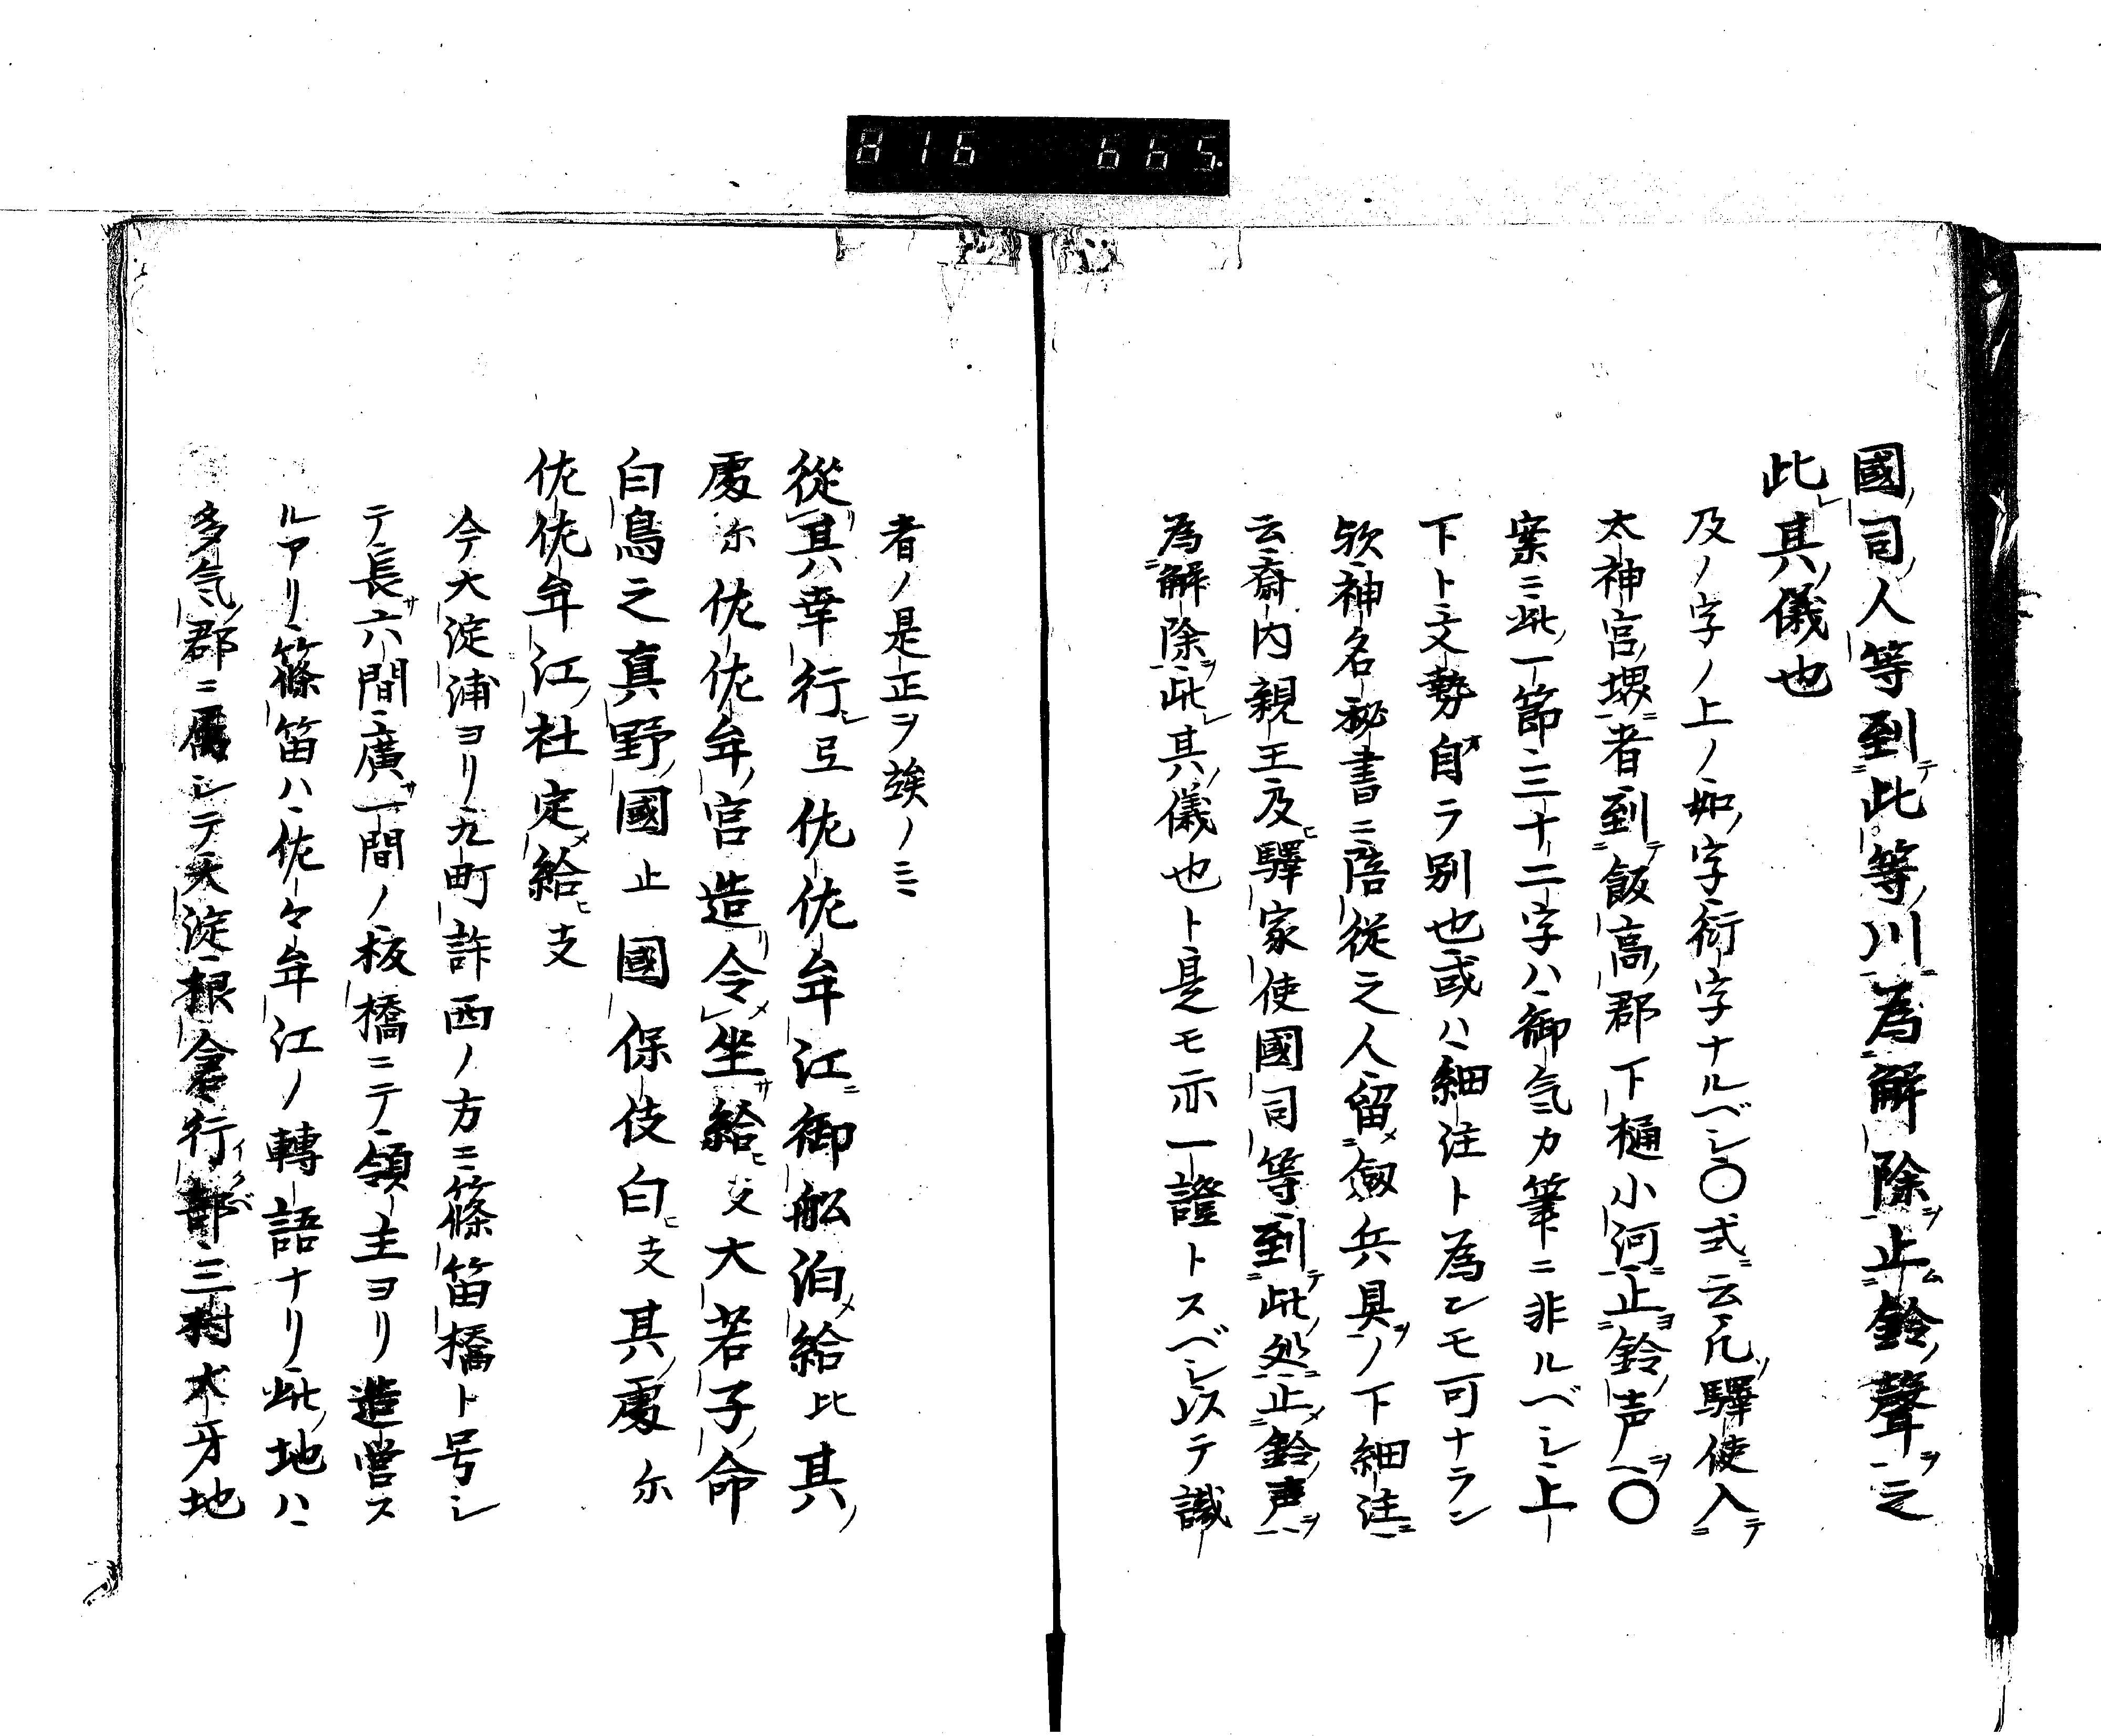 816 665
國司人等到此等川為解除止鈴聲之
此其儀也
及ノ字ノ上ノ如字衍字ナルベシ〇式云凡驛使入
太神宮堺者到飯高郡下樋小河止鈴声〇
案ニ此一節三十二字ハ御気カ筆ニ非ルベシ上
下ト文勢自ラ別也或ハ細注ト為ンモ可ナラン
欤神名秘書ニ陪從之人留劔兵具ノ下細注
云齋内親王及驛家使國司等到此処止鈴声
為解除此其儀也ト是モ亦一證トスベシ以テ識
者ノ是正ヲ竢ノミ
從其幸行弖佐佐牟江御舩泊給比其
處尓佐佐牟宮造令坐給支大若子命
白鳥之真野國止國保伎白支其處尓
佐佐牟江社定給支
今大淀浦ヨリ九町許西ノ方ニ篠笛橋ト号シ
テ長六間廣一間ノ板橋ニテ領主ヨリ造営ス
ルアリ篠笛ハ佐々牟江ノ轉語ナリ此地ハ
多気郡ニ属シテ大淀根倉行部三村犬牙地